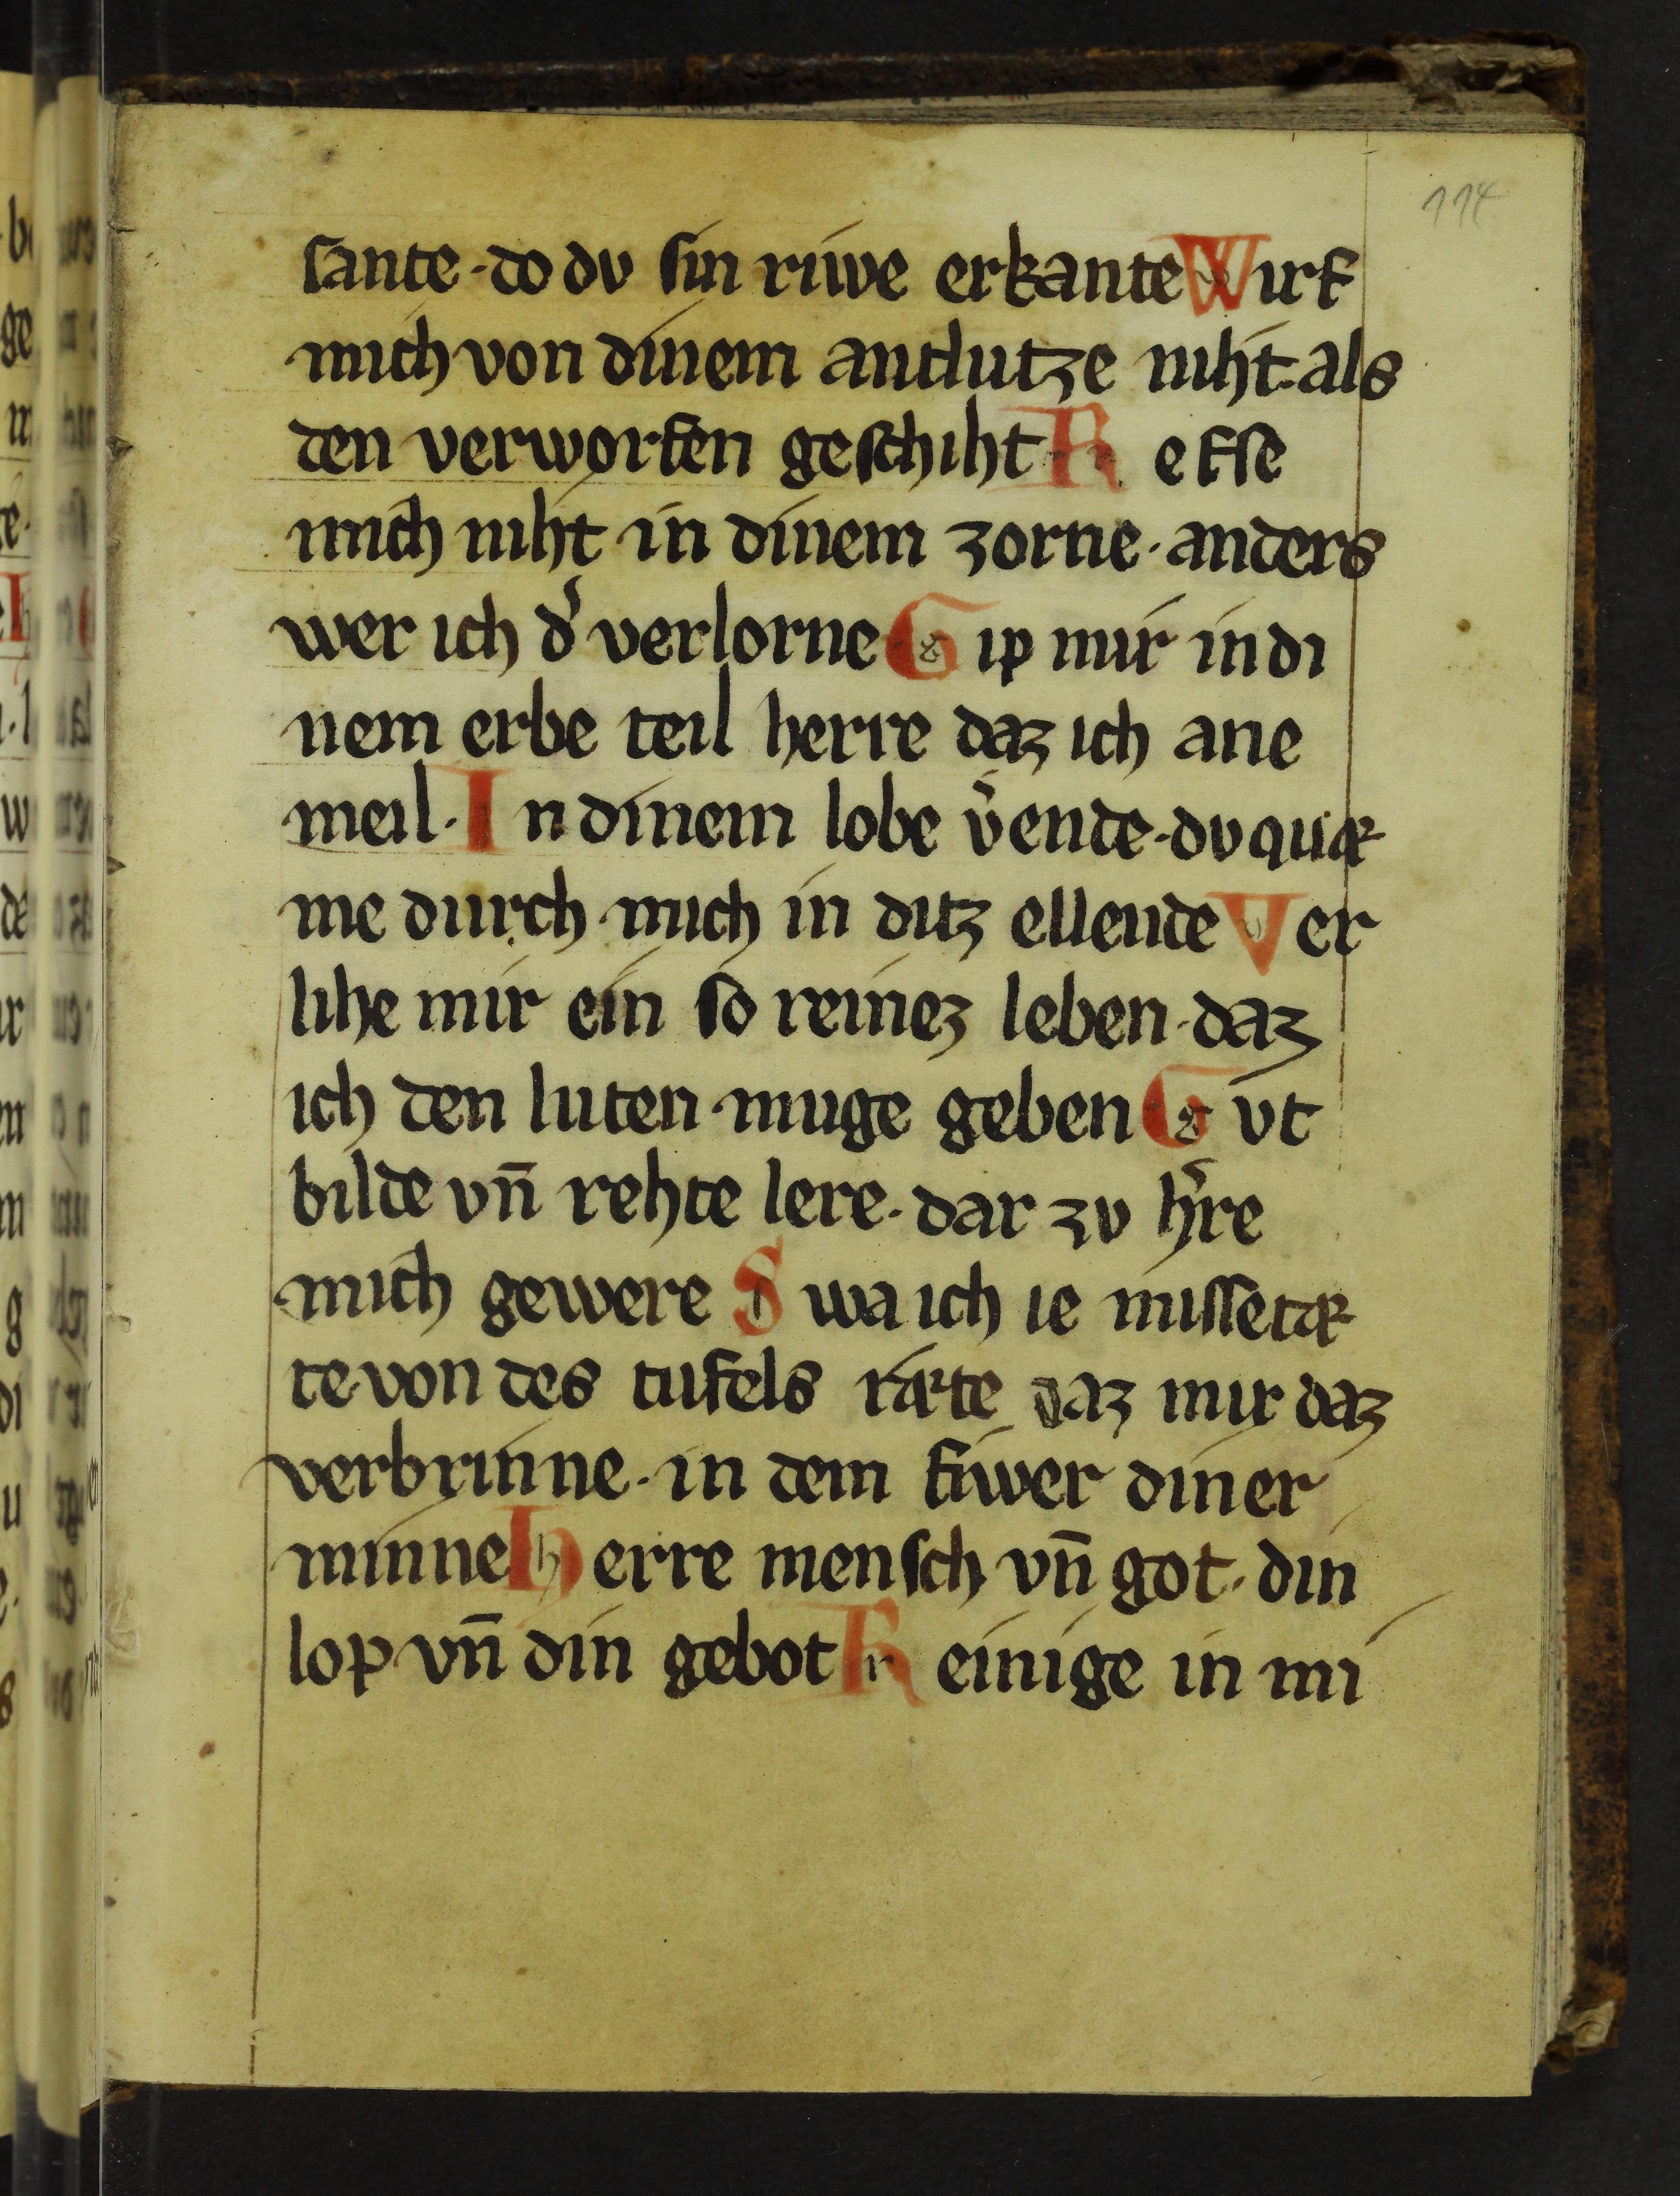 114
sante·do dv sin riwe erkante Wirf
mich von dinem antlutze niht·als
den verworfen geschiht Refse
mich niht in dinem zorne·anders
wer ich d᾽ verlorne Gip mir in di
nem erbe teil herre daz ich ane
meil·In dinem lobe v᾽ende·dv quæ
me durch mich in ditz ellende Ver
lihe mir ein so reinez leben·daz
ich den luten muge geben Gvt
bilde vn̄ rehte lere·dar zv h᾽re
mich gewere Swa ich ie missetæ
te·von des tufels ræte daz mir daz
verbrinne·in dem fiwer diner
minne Herre mensch vn̄ got·din
lop vn̄ din gebot Reinige in mi